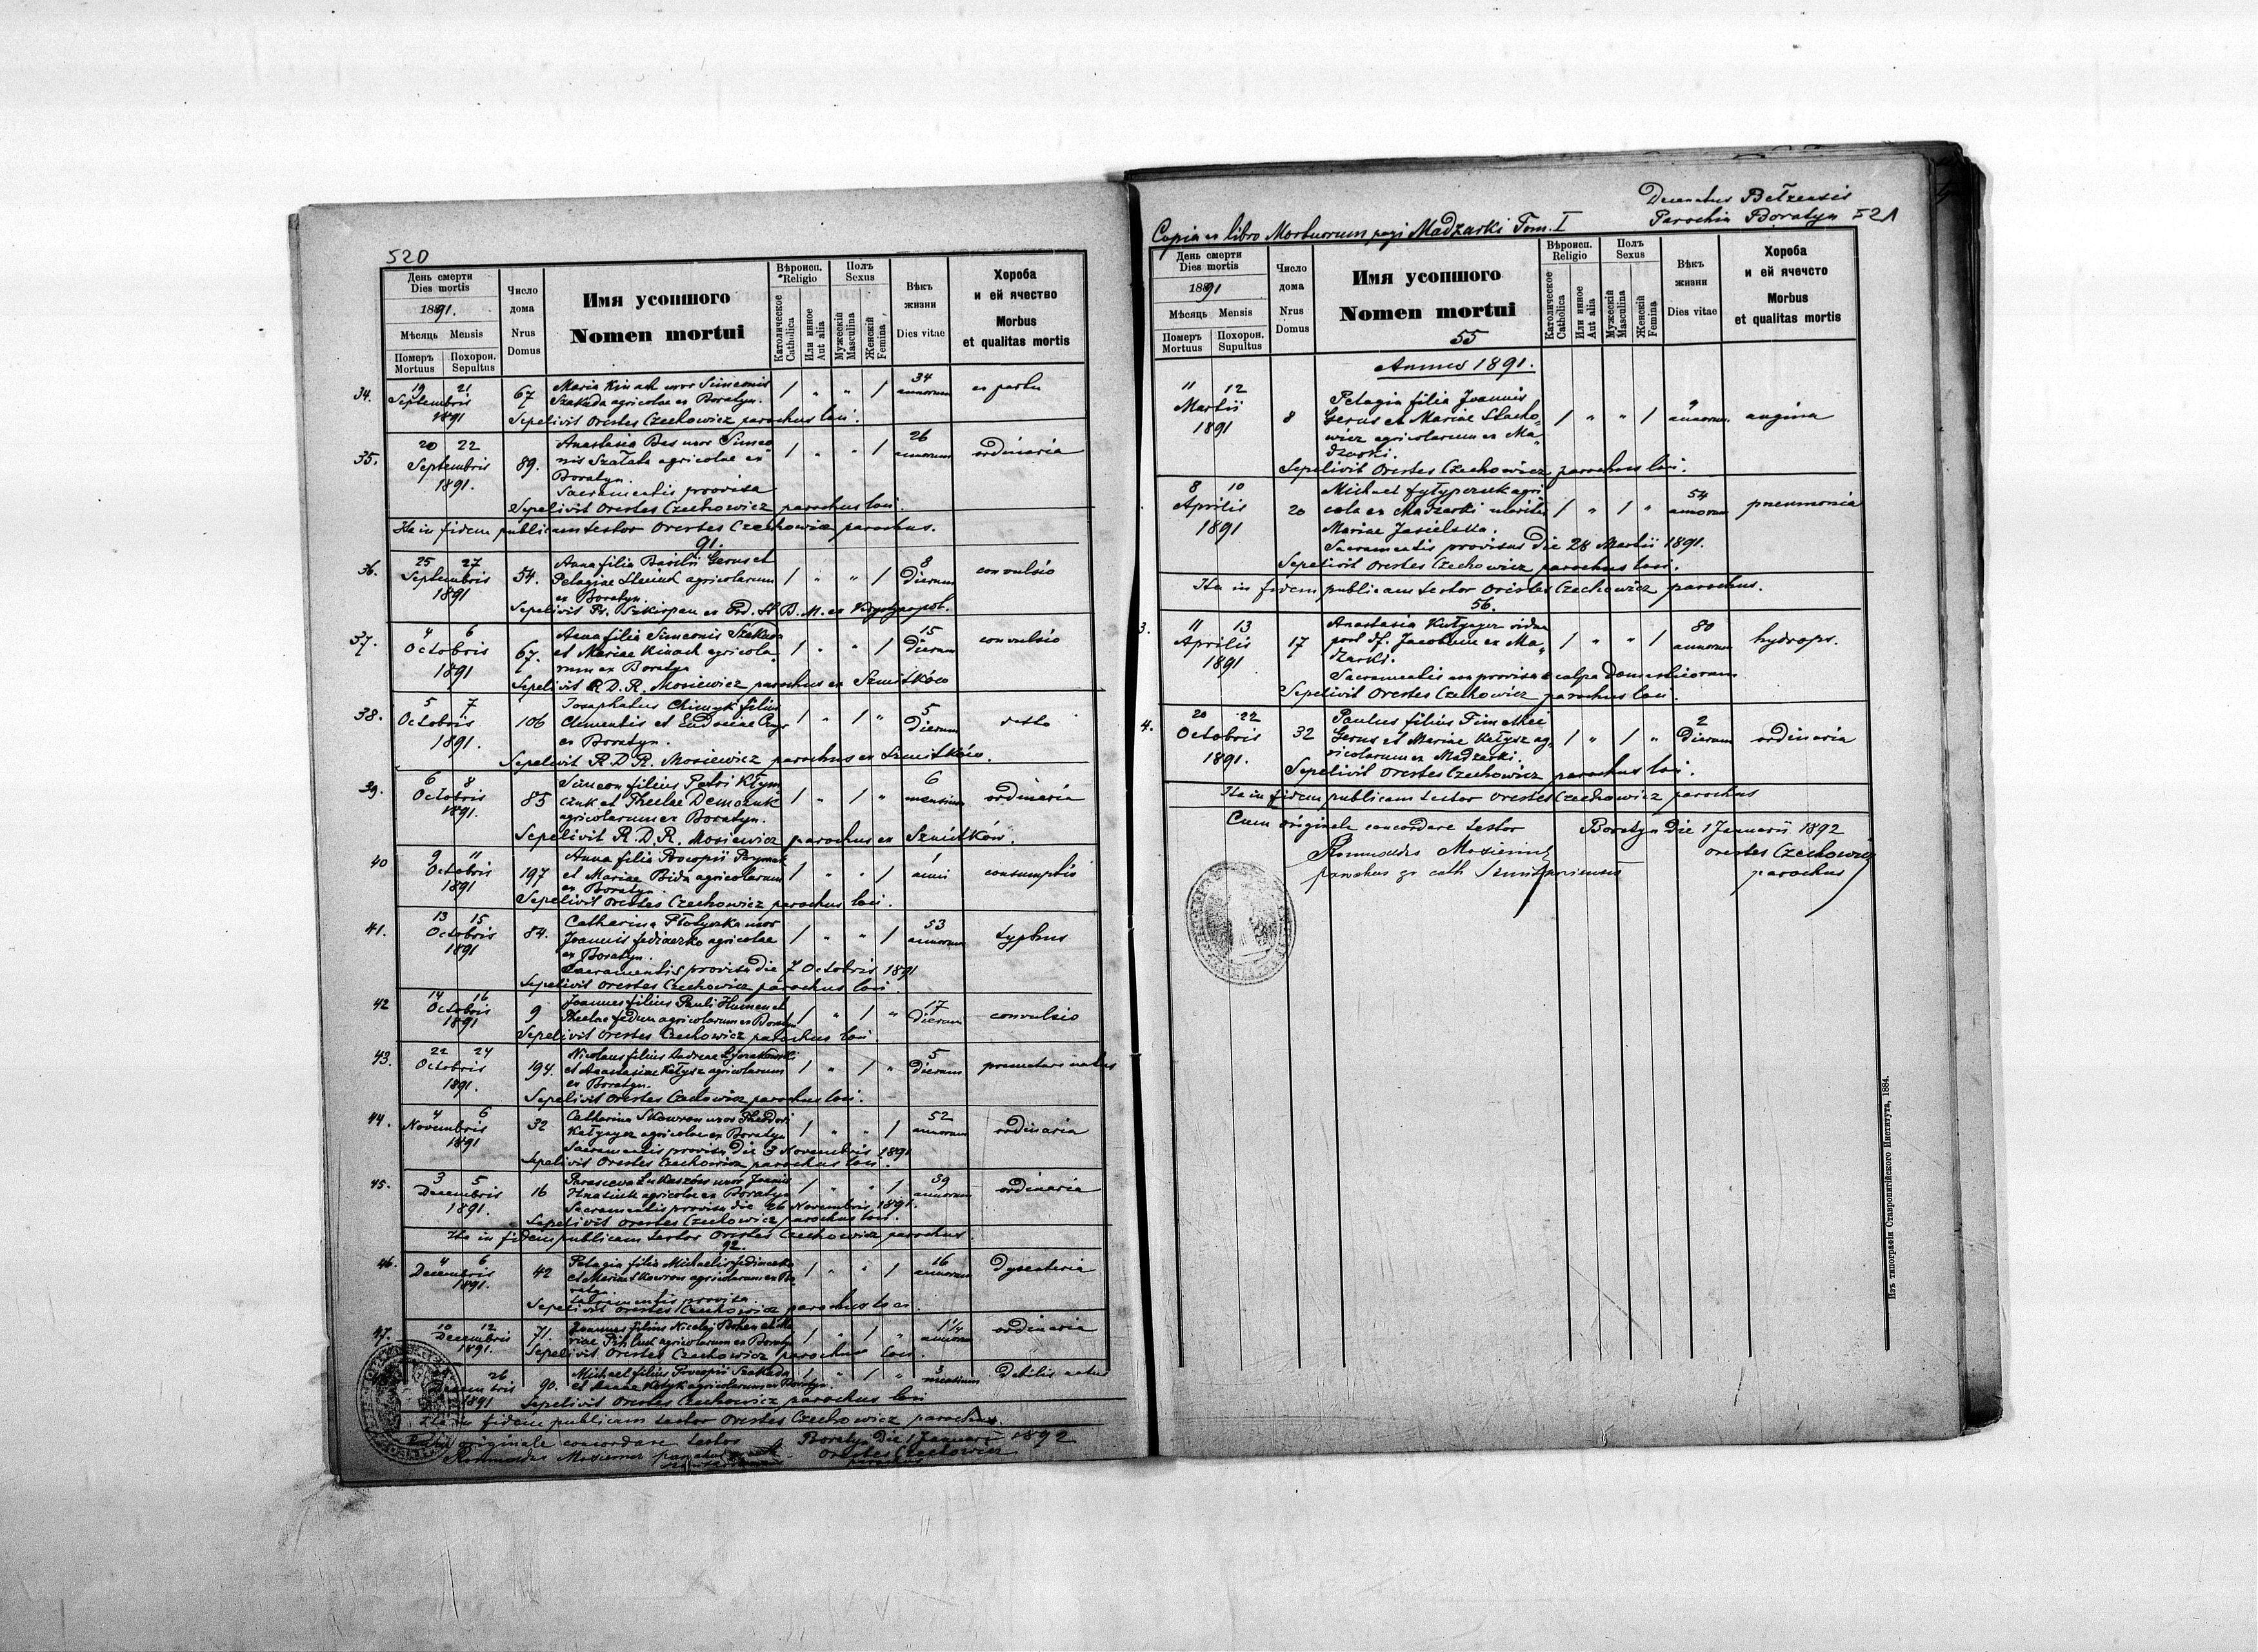 520
День смерти
Dies mortis
1891.
Мѣсяць Mensis
Померъ Похорон.
Mortuus Sepultus
Число
дома
Nrus
Domus
Имя усопшого
Nomen mortui
Вѣроисп.
Religio
Католическое
Catholica
Или инное
Aut alia
Полъ
Sexus
Мужескій
Masculina
Женскій
Femina
Вѣкъ
жизни
Dies vitae
Хороба
и ей ячество
Morbus
et qualitas mortis
34. 19 21 Septembris 1891 67 Maria Kinach uxor Simeonis 1 " " 1 34 annorum ex partu
Szakada agricolae ex Boratyn.
Sepelivit Orestes Czechowicz parochus loci.
35. 20 22 Septembris 1891. 89. Anastasia Bas uxor Simeo 1 " " 1 26 annorum ordinaria
nis Szałata agricolae ex
Boratyn.
Sacramentis provisa
Sepelivit Orestes Czechowicz parochus loci.
Ita in fidem publicam testor Orestes Czechowicz parochus.
91.
36. 25 27 Septembris 1891 54. Anna filia Basilii Gerus et 1 " " 1 8 dierum convulsio
Pelagiae agricolarum
ex Boratyn.
Sepelivit Fr. ex Ord. St B. M. ex Krystynopol.
37. 4 6 Octobris 1891 67. Anna filia Simeonis Szakada 1 " " 1 15 dierum convulsio
et Mariae Kinach agricola
rum ex Boratyn
Sepelivit R. D. R. Mosiewicz parochus ex Szmitków
38. 5 7 Octobris 1891. 106 Josaphatus Chimyk filius 1 " 1 " 5 dierum
Clementis et Eudociae
ex Boratyn.
Sepelivit R. D. R. Mosiewicz parochus ex Szmitków.
39. 6 8 Octobris 1891. 85 Simeon filius Petri Kłym 1 " 1 " 6 mensium ordinaria
czuk et Theclae Demczuk
agricolarum ex Boratyn.
Sepelivit R. D. R. Mosiewicz parochus ex Szmitków.
40 9 11 Octobris 1891 197 Anna filia Procopii 1 " " 1 1 anni consumptio
et Mariae Bida agricolarum
ex Boratyn.
Sepelivit Orestes Czechowicz parochus loci.
41. 13 15 Octobris 1891 84. Catharina uxor 1 " " 1 53 annorum typhus
Joannis agricolae
ex Boratyn.
Sacramentis provisa die 7 Octobris 1891
Sepelivit Orestes Czechowicz parochus loci.
42 14 16 Octobris 1891 9 Joannes filius Pauli Humen et 1 " 1 " 17 dierum convulsio
Theclae Fedun agricolarum ex Boratyn
Sepelivit Orestes Czechowicz parochus loci.
43. 22 24 Octobris 1891. 194. Nicolaus filius Andreae 1 " 1 " 5 dierum premature natus
et Anastasiae Kałysz agricolarum
ex Boratyn.
Sepelivit Orestes Czechowicz parochus loci.
44. 4 6 Novembris 1891 32 Catharina Skowron uxor Theodori 1 " " 1 52 annorum ordinaria
agricolae ex Boratyn
Sacramentis provisa die 3 Novembris 1891
Sepelivit Orestes Czechowicz parochus loci.
45. 3 5 Decembris 1891. 16 Parasceva uxor Joannis 1 " " 1 39 annorum ordinaria
Hnatiuk agricolae ex Boratyn
Sacramentis provisa die 26 Novembris 1891.
Sepelivit Orestes Czechowicz parochus loci.
Ita in fidem publicam testor Orestes Czechowicz parochus.
92.
46. 4 6 Decembris 1891. 42 Pelagia filia Michaelis 1 " " 1 16 annorum dysenteria
et Mariae Skowron agricolarum ex Bo
ratyn.
Sacramentis provisa.
Sepelivit Orestes Czechowicz parochus loci.
47. 10 12 Decembris 1891. 71. Joannes filius Nicolai et Ma 1 " 1 " 1 1/4 annorum ordinaria
riae agricolarum ex Boratyn
Sepelivit Orestes Czechowicz parochus loci.
26 Decembris 1891 90. Michael filius Procopii Szakada 1 " 1 " 3 mensium debilis natus
et Annae Kotyk agricolarum ex Boratyn.
Sepelivit Orestes Czechowicz parochus loci
Ita in fidem publicam testor Orestes Czechowicz parochus.
Cum originale concordare testor Boratyn die 1 Januarii 1892
Orestes Czechowicz
parochus
Decanatus Bełzensis
Parochia Boratyn 521
Copia ex libro Mortuorum pagi Madzarki Tom. I
День смерти
Dies mortis
1891
Мѣсяць Mensis
Померъ Похорон.
Mortuus Supultus
Число
дома
Nrus
Domus
Имя усопшого
Nomen mortui
55
Вѣроисп.
Religio
Католическое
Catholica
Или инное
Aut alia
Полъ
Sexus
Мужескій
Masculina
Женскій
Femina
Вѣкъ
жизни
Dies vitae
Хороба
и ей ячечсто
Morbus
et qualitas mortis
Annus 1891.
11 12 Martii 1891 8 Pelagia filia Joannis 1 " " 1 9 annorum. angina
Gerus et Mariae Stacho„
wicz agricolarum ex Ma„
dzarki.
Sepelivit Orestes Czechowicz parochus loci.
8 10 Aprilis 1891 20 Michael agri 1 " 1 " 54 annorum pneumonia
cola ex Madzarki maritus
Mariae Jasielska.
Sacramentis provisus die 28 Martii 1891.
Sepelivit Orestes Czechowicz parochus loci.
Ita in fidem publicam testor Orestes Czechowicz parochus.
56.
3. 11 13 Aprilis 1891 17 Anastasia vidua 1 " " 1 80 annorum hydrops.
post df. Jacobum ex Ma„
dzarki.
Sacramentis non provisa e culpa domesticorum
Sepelivit Orestes Czechowicz parochus loci.
4. 20 22 Octobris 1891. 32 Paulus filius Timothei 1 " 1 " 2 dierum ordinaria
Gerus et Mariae Kałysz ag„
ricolarum ex Madzarki.
Sepelivit Orestes Czechowicz parochus loci.
Ita in fidem publicam testor Orestes Czechowicz parochus
Cum originale concordare testor Boratyn die 1 Januarii 1892
Romualdus Mosiewicz Orestes Czechowicz
parochus gr cath parochus
Изъ типографіи Ставропигійского Института, 1884.